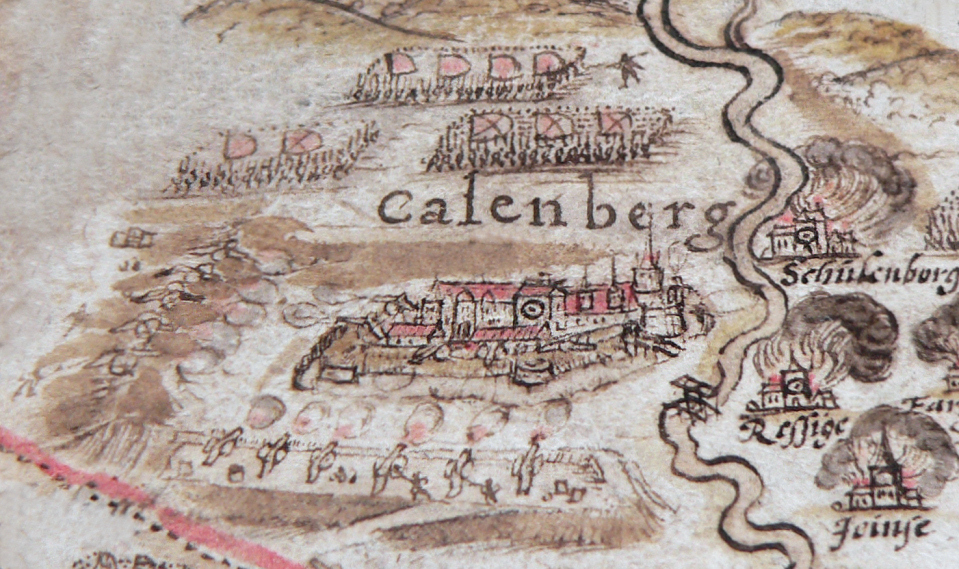 Calenberg
Schulenborg
Ressige
Jeinse